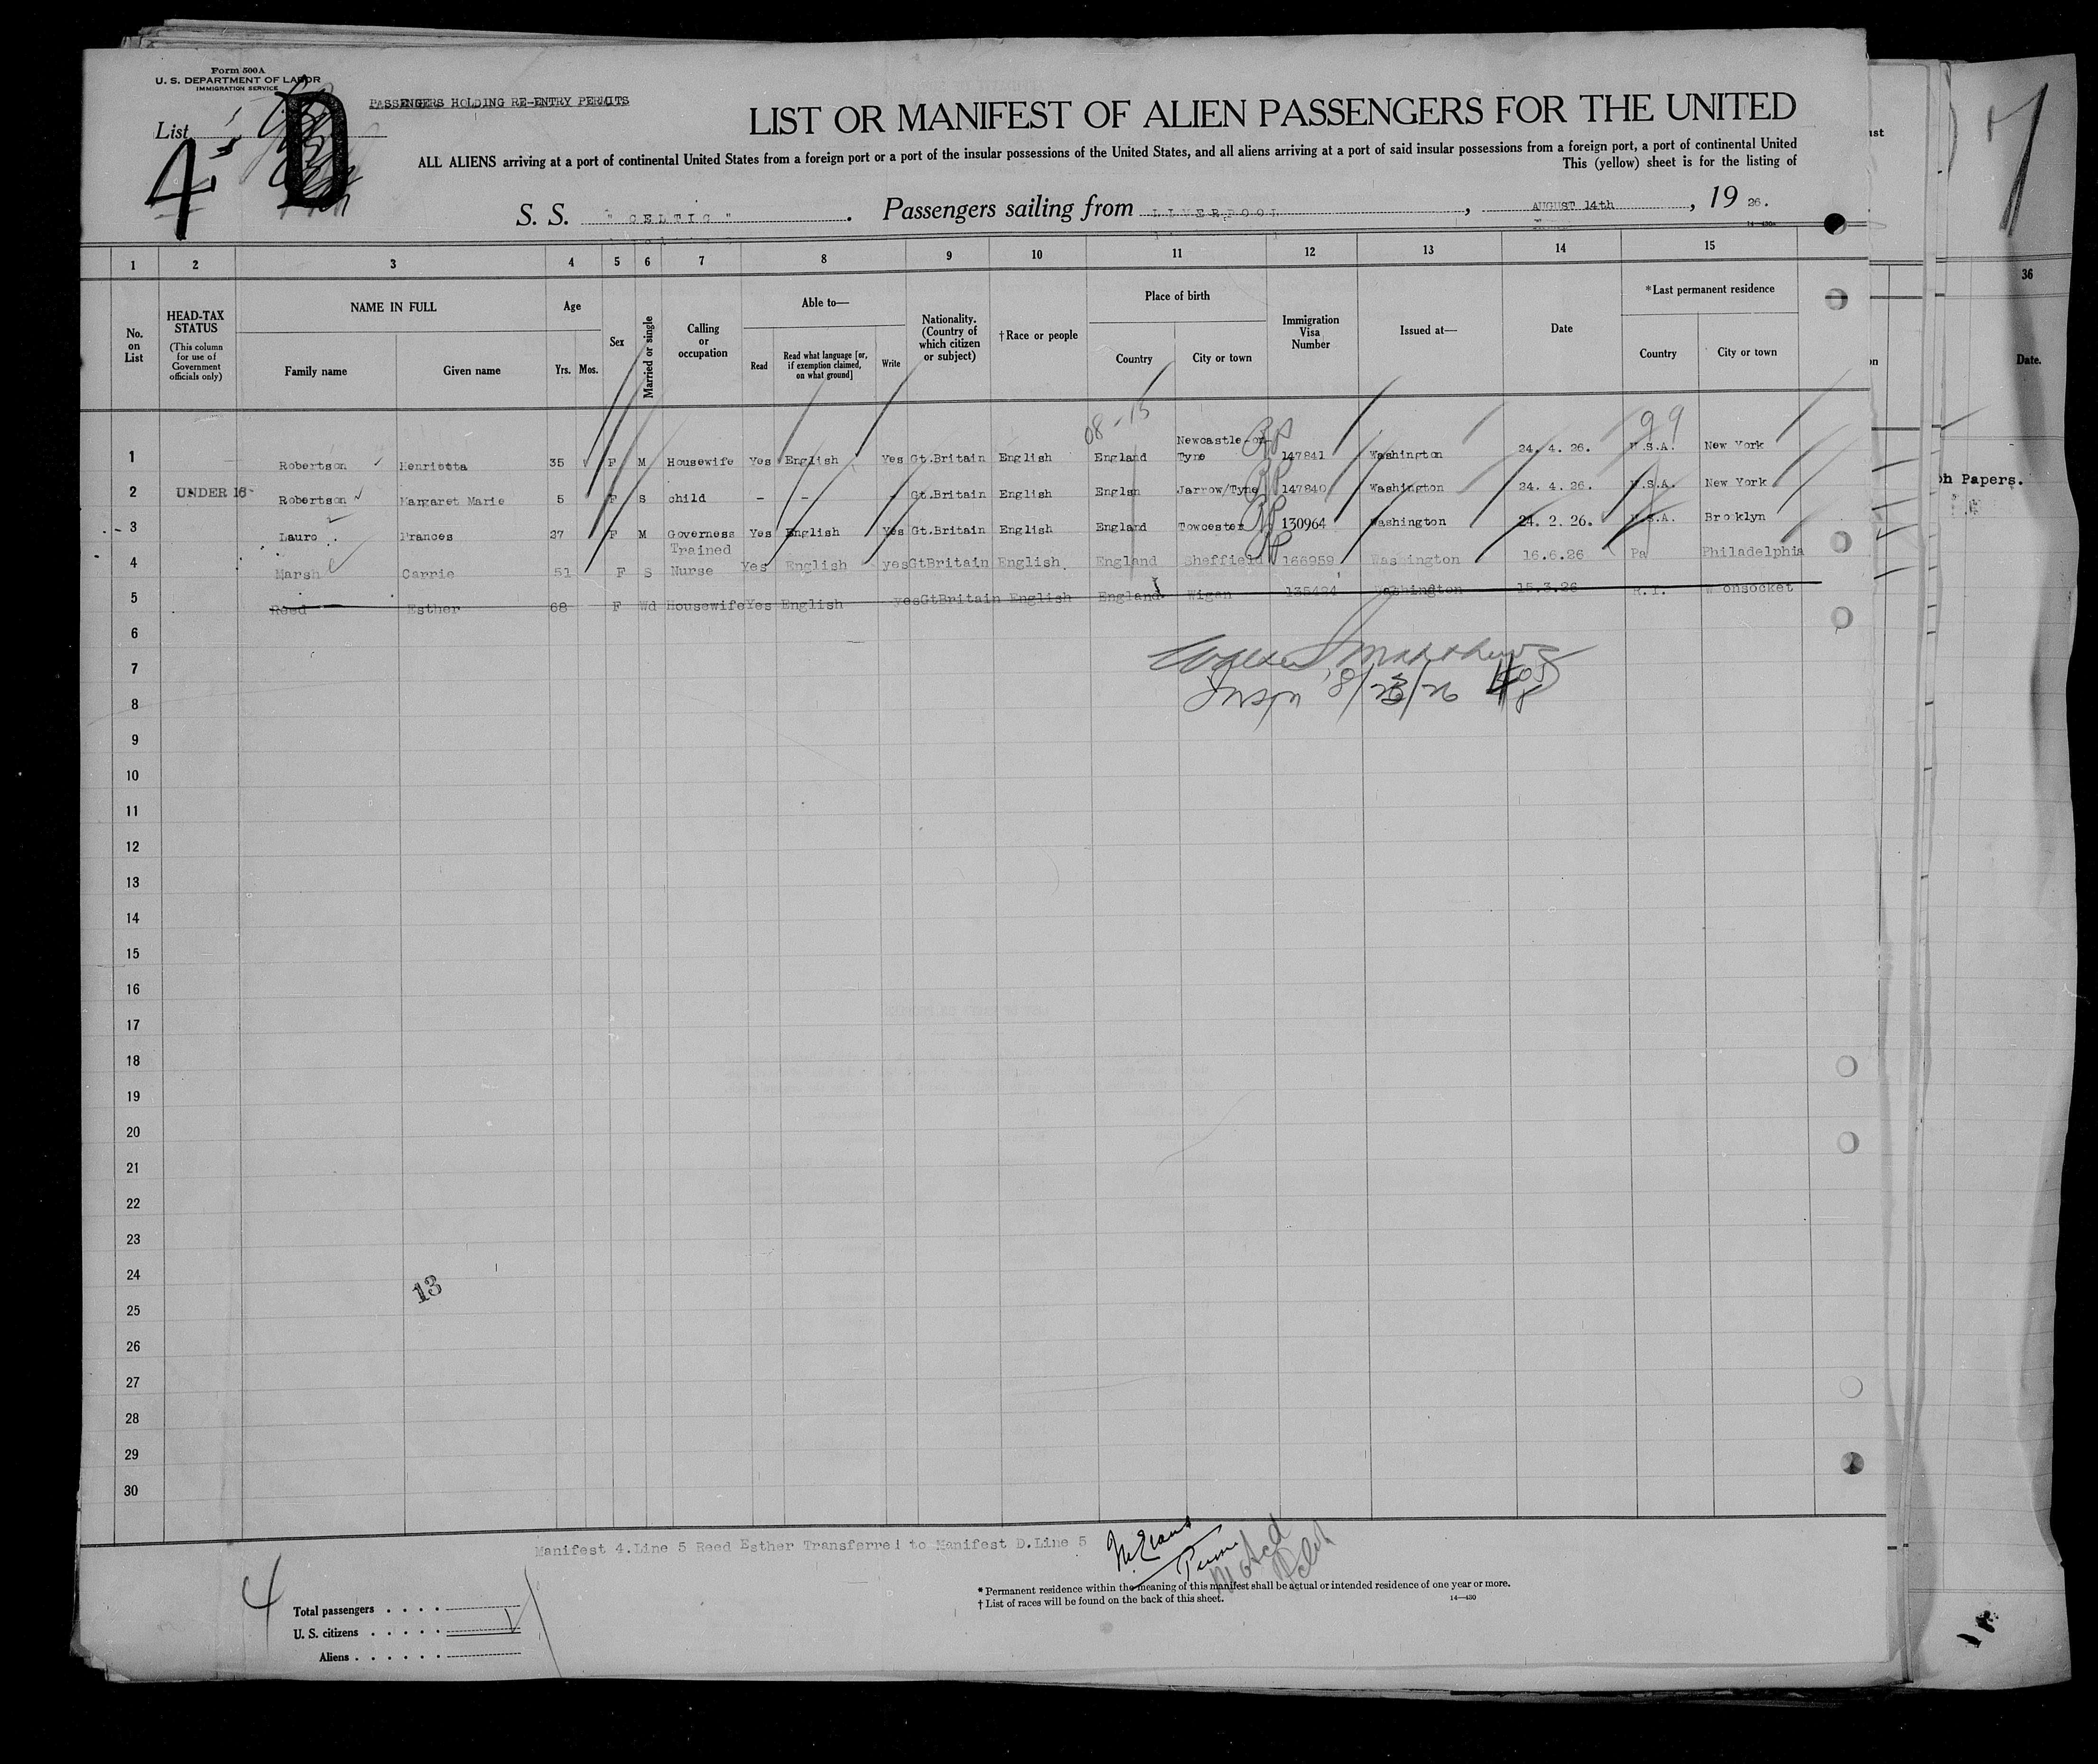 Form 500A
U. S. DEPARTMENT OF LABOR
IMMIGRATION SERVICE
PASSENGERS HOLDING RE-ENTRY PERMITS
List
4
D
LIST OR MANIFEST OF ALIEN PASSENGERS FOR THE UNITED
ALL ALIENS arriving at a port of continental United States from a foreign port or a port of the insular possessions of the United States, and all aliens arriving at a port of said insular possessions from a foreign port, a port of continental United
This (yellow) sheet is for the listing of
S. S. " CELTIC " . Passengers sailing from LIVERPOOL , AUGUST 14th , 19 26.
1 2 3 4 5 6 7 8 9 10 11 12 13 14 15
No. on List
HEAD-TAX STATUS (This column for use of Government officials only)
NAME IN FULL
Family name
Given name
Age
Yrs. Mos.
Sex
Married or single
Calling or occupation
Able to—
Read
Read what language [or, if exemption claimed, on what ground]
Write
Nationality. (Country of which citizen or subject)
†Race or people
Place of birth
Country
City or town
Immigration Visa Number
Issued at—
Date
*Last permanent residence
Country
City or town
08-15
99
1 Robertson Henrietta 35 F M Housewife Yes English Yes Gt.Britain English England Newcastle-on-Tyne 147841 Washington 24. 4. 26. U.S.A. New York
2 UNDER 16 Robertson Margaret Marie 5 F S child - - - Gt.Britain English Englsn Jarrow/Tyne 147840 Washington 24. 4. 26. U.S.A. New York
3 Lauro Frances 27 F M Governess Yes English Yes Gt.Britain English England Towcester 130964 Washington 24. 2. 26. U.S.A. Brooklyn
4 Marsh Carrie 51 F S Trained Nurse Yes English yes GtBritain English. England Sheffield 166959 Washington 16.6.26 Pa Philadelphia
5 Reed Esther 68 F Wd Housewife Yes English yes GtBritain English England Wigan Washington 15.3.26 R.I. W onsocket
6
7
8
9
10
11
12
13
14
15
16
17
18
19
20
21
22
23
24
25
26
27
28
29
30
13
Manifest 4.Line 5 Reed Esther Transferred to Manifest D.Line 5
4
Total passengers
U. S. citizens
Aliens
* Permanent residence within the meaning of this manifest shall be actual or intended residence of one year or more.
† List of races will be found on the back of this sheet.
14—430
36
Date.
Papers.